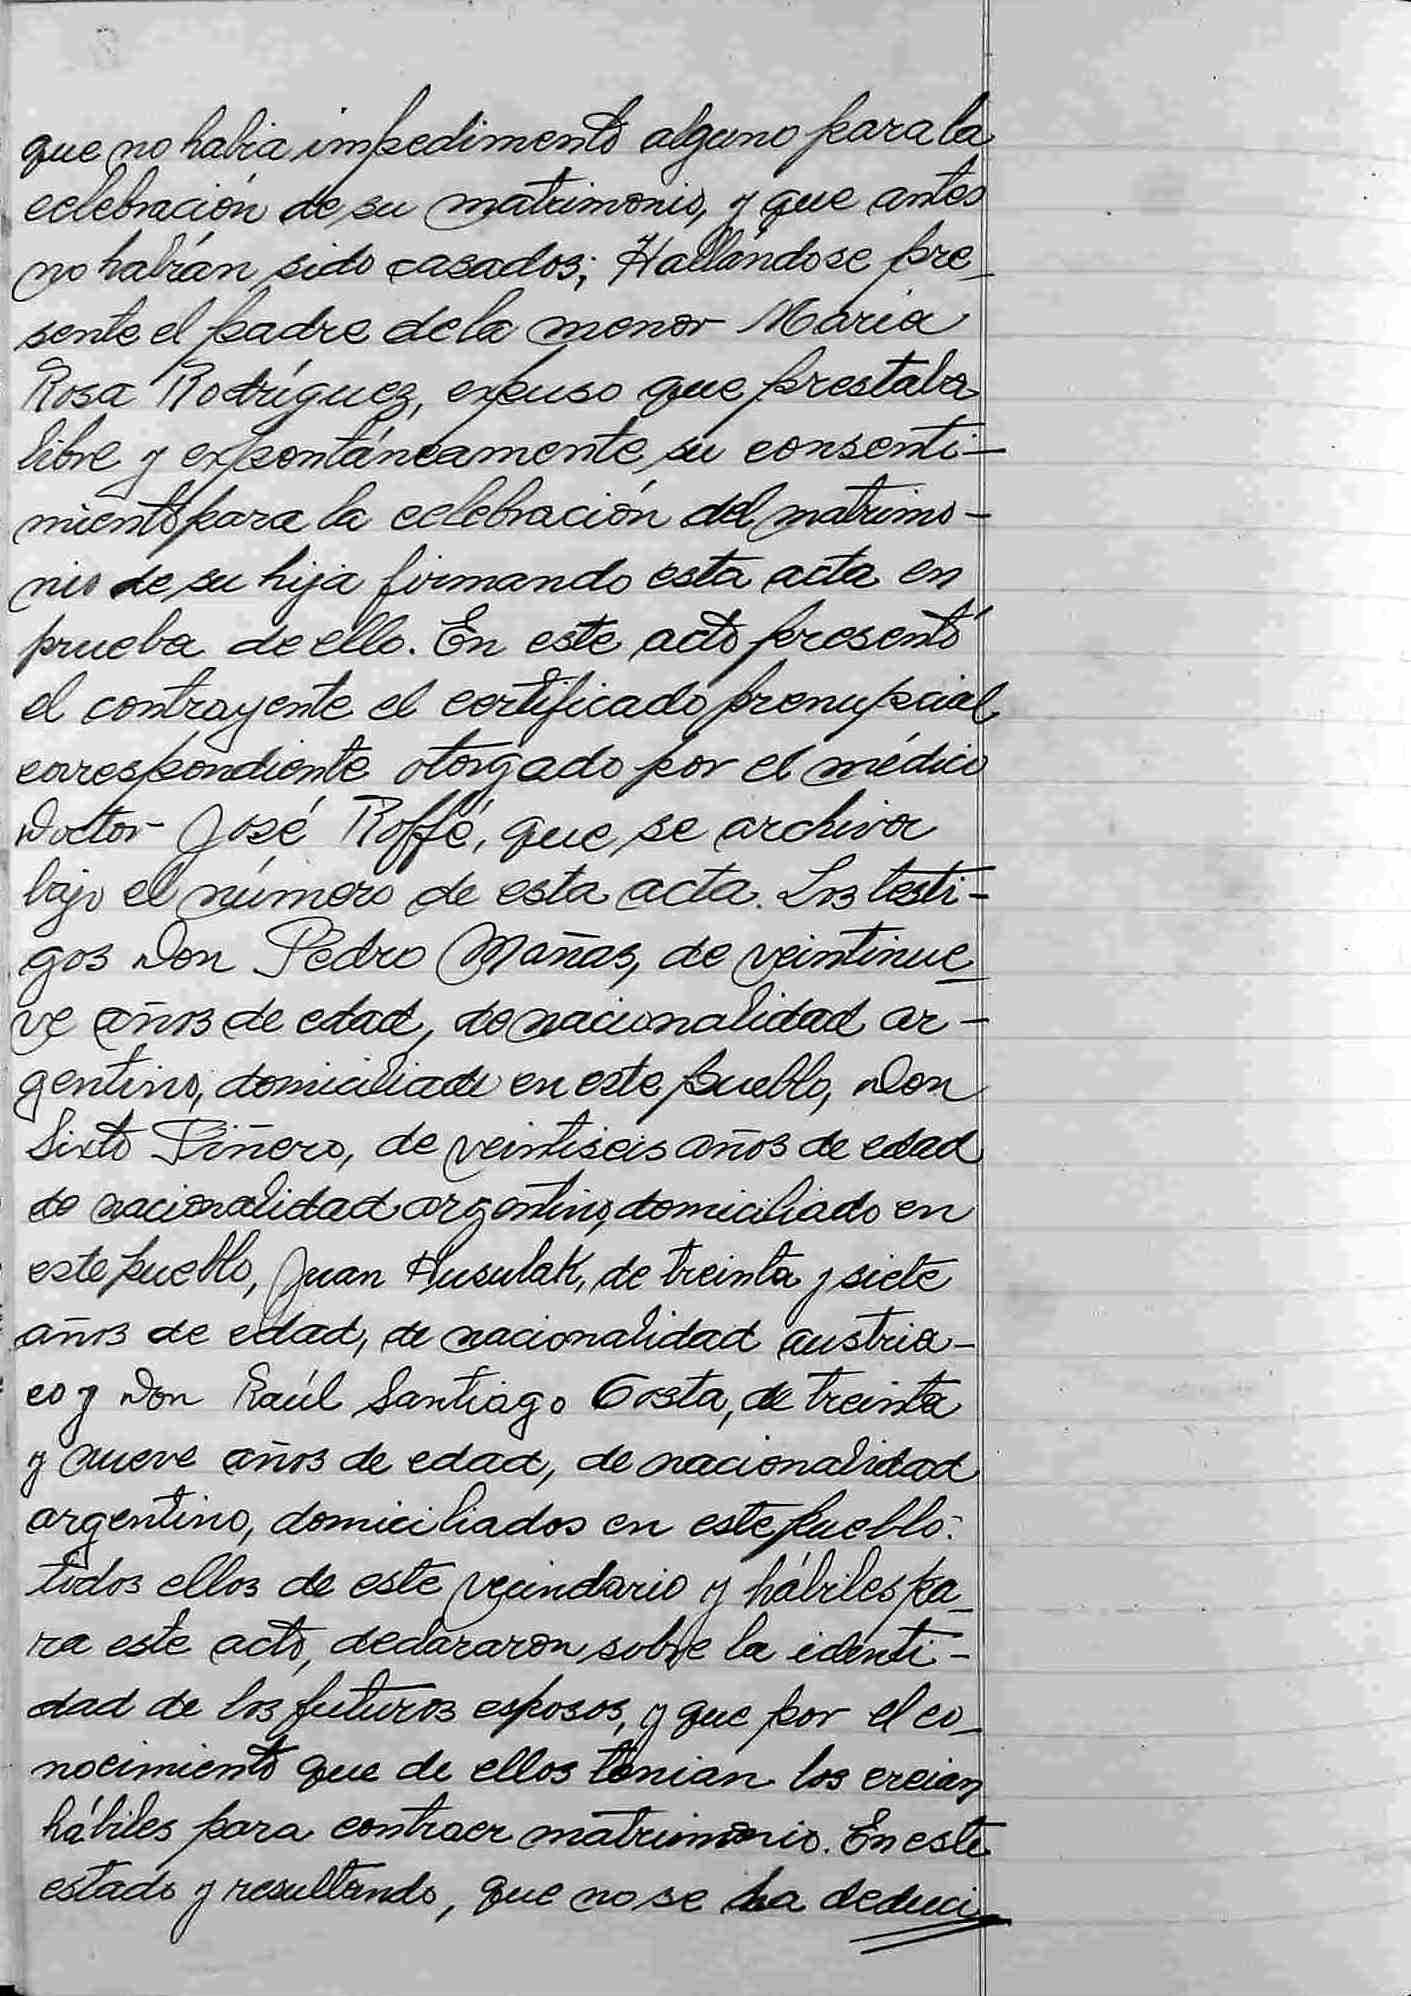 que no habia impedimento alguno para la
celebración de su matrimonio, y que antes
no habían sido casados; Hallándose pre-
sente el padre de la menor María
Rosa Rodríguez, expuso que prestaba
libre y expontáneamente su consenti-
miento para la celebración del matrimo-
nio de su hija firmando esta acta en
prueba de ello. En este acto presentó
el contrayente el certificado prenupcial
correspondiente otorgado por el médico
Doctor José Roffé, que se archiva
bajo el número de esta acta. Los testi-
gos Don Pedro Mañas, de veintinue
ve años de edad, de nacionalidad ar-
gentino, domiciliado en este pueblo, Don
Sixto Piñero, de veintiseis años de edad
de nacionalidad argentino, domiciliado en
este pueblo, Juan Husulak, de treinta y siete
años de edad, de nacionalidad austria-
co y Don Raúl Santiago Costa, de treinta
y nueve años de edad, de nacionalidad
argentino, domiciliados en este pueblo.
todos ellos de este vecindario y hábiles pa-
ra este acto, declararon sobre la identi-
dad de los futuros esposos, y que por el co-
nocimiento que de ellos tenian los creian
hábiles para contraer matrimonio. En este
estado y resultando, que no se ha deduci